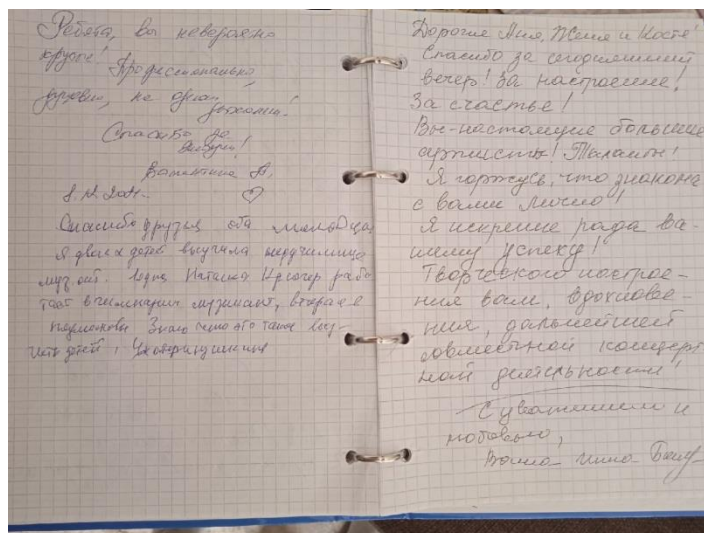 Ребята, вы невероятно
крутые! Профессионально,
душевно, на одном
дыхании!
Спасибо за
вечер!
Валентина А.
Спасибо друзья оба молодца,
я двоих детей выучила
муз. Одна Наталка
музыкант, вторая в
Знаю что это такое выу-
чить детей,
Дорогие Аня, Женя и Костя!
Спасибо за сегодняшний
вечер! За настроение!
За счастье!
Вы-настоящие большие
артисты! Таланты!
Я горжусь, что знакома
с вами лично!
Я искренне рада ва-
шему успеху!
Творческого настрое-
ния вам, вдохнове-
ния, дальнейшей
совместной концерт-
ной деятельности!
С уважением и
любовью,